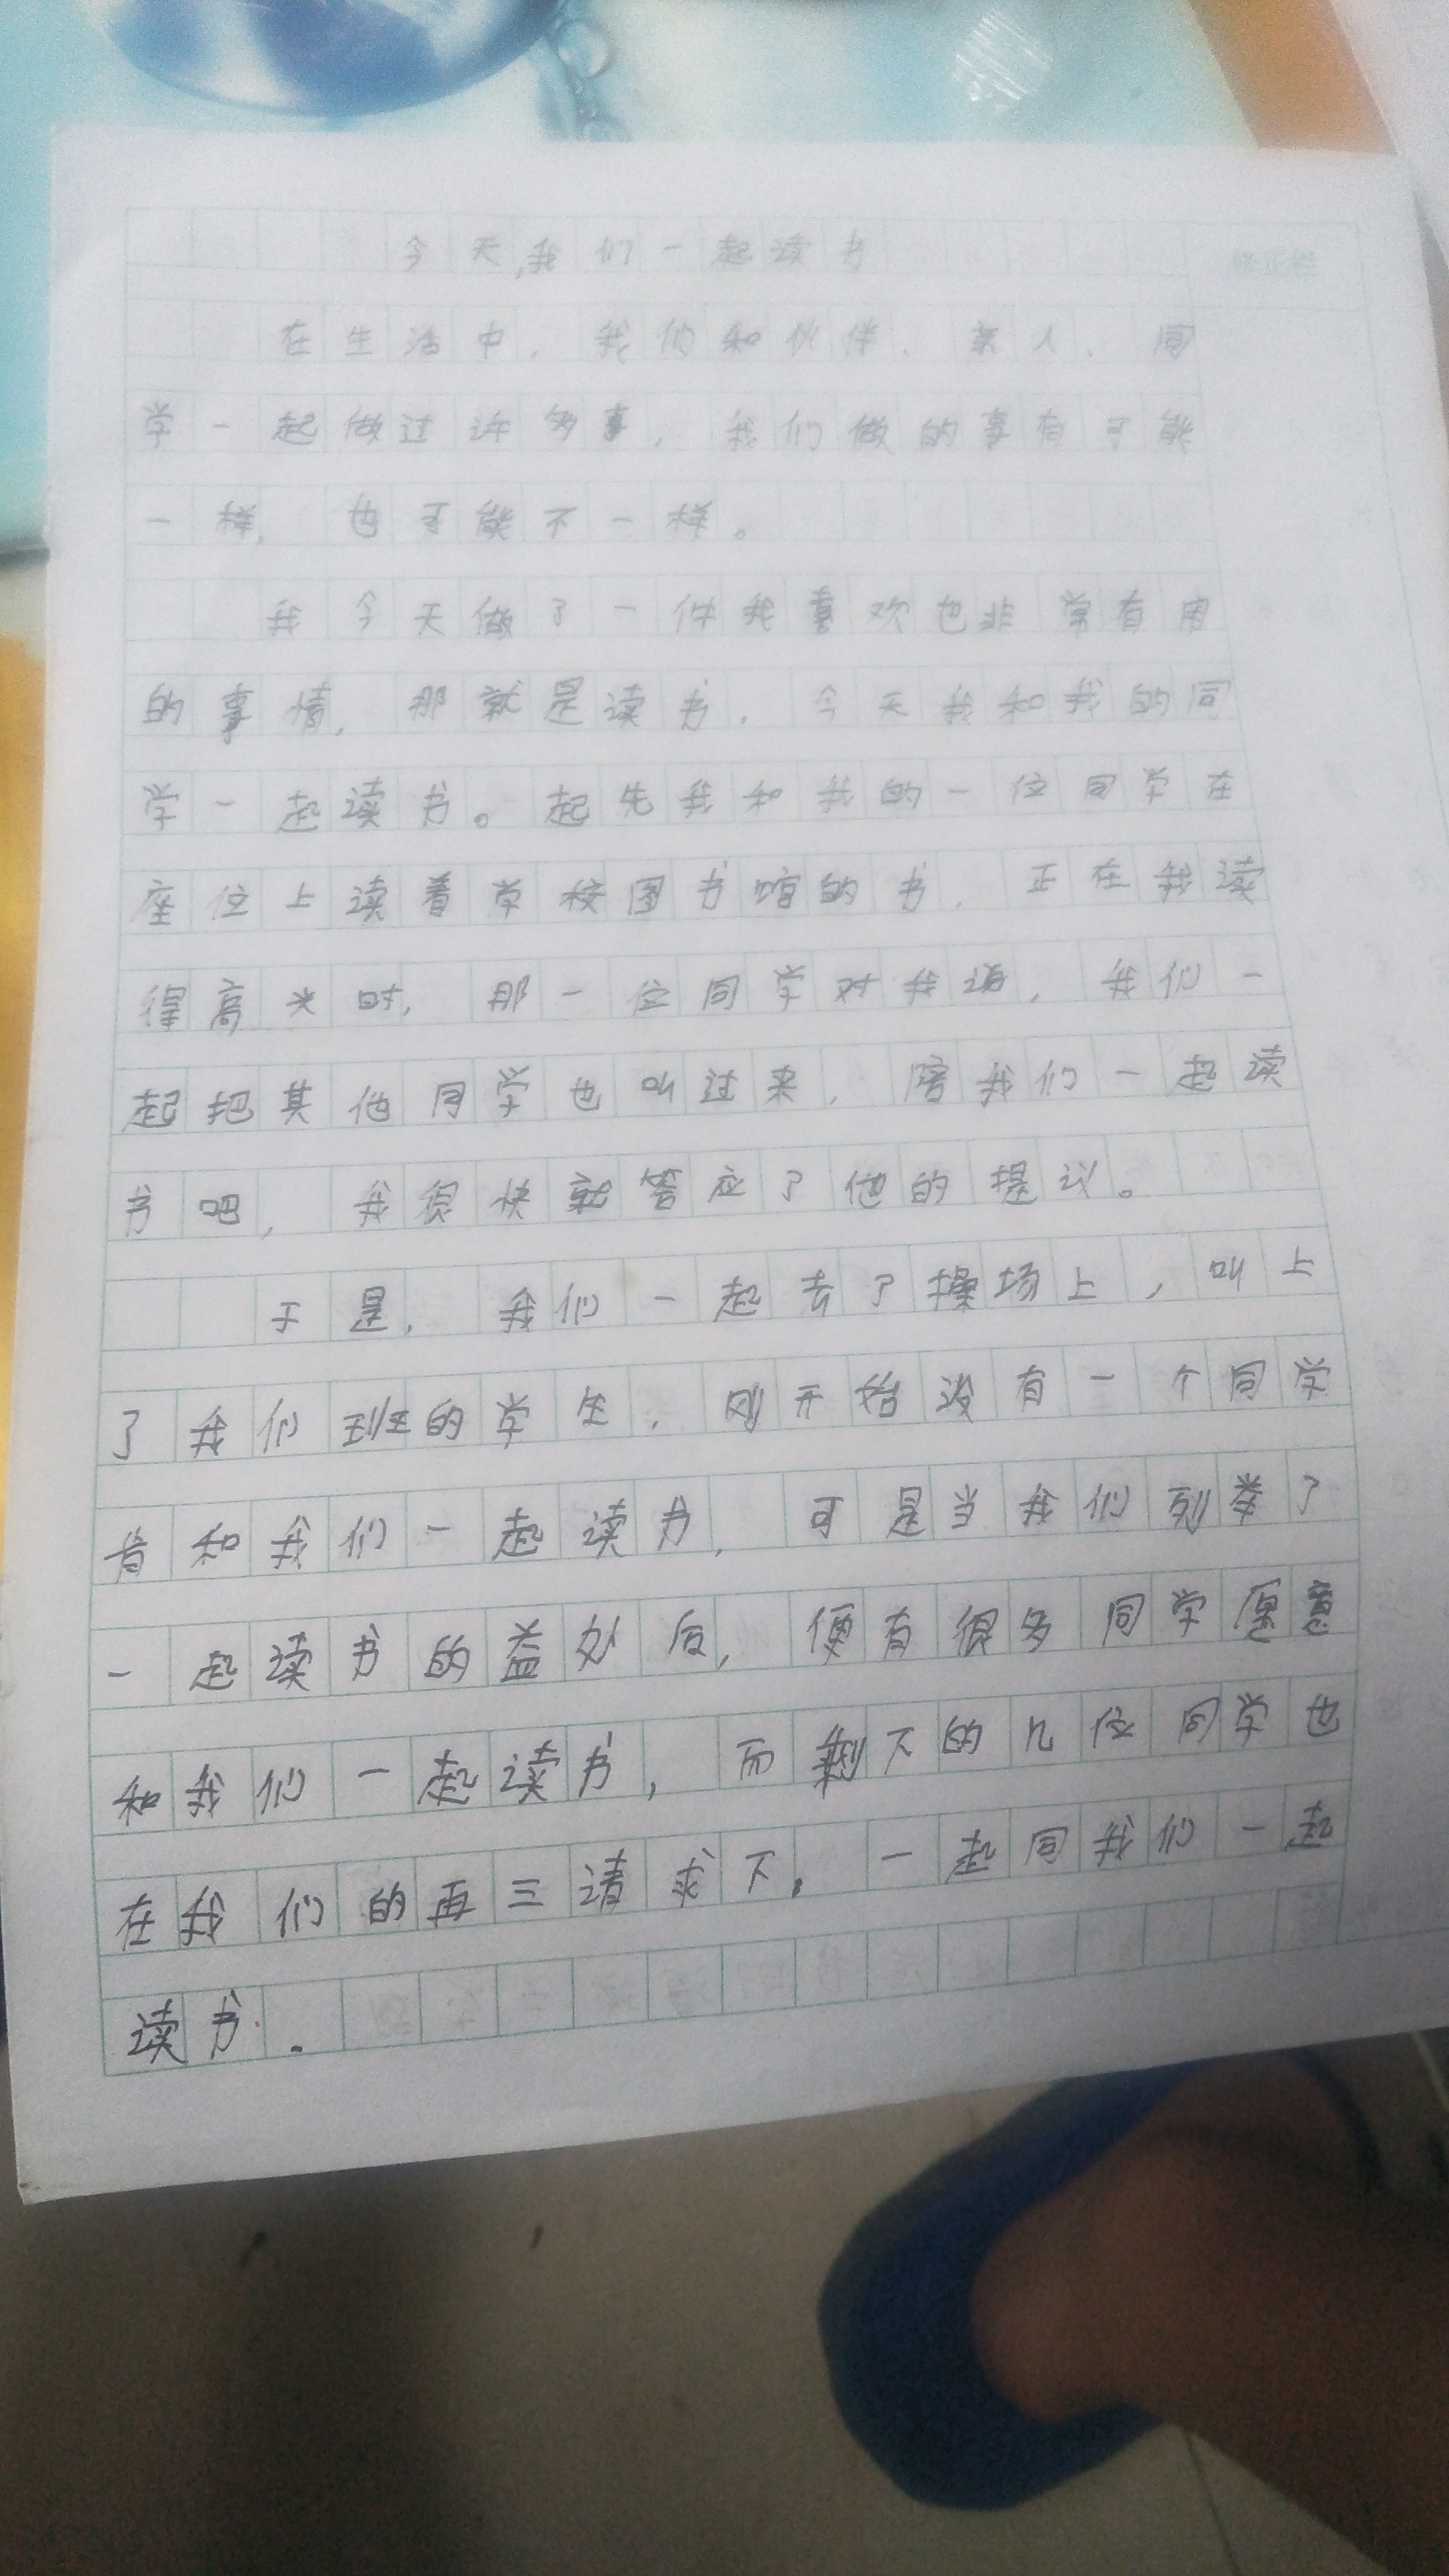 今天,我们一起读书
修正栏
在生活中，我们和伙伴、亲人、同
学一起做过许多事，我们做的事有可能
一样，也可能不一样。
我今天做了一件我喜欢也非常有用
的事情，那就是读书，今天我和我的同
学一起读书。起先我和我的一位同学在
座位上读着学校图书馆的书，正在我读
得高兴时，那一位同学对我说，我们一
起把其他同学也叫过来，陪我们一起读
书吧，我很快就答应了他的提议。
于是，我们一起去了操场上，叫上
了我们班的学生，刚开始没有一个同学
肯和我们一起读书，可是当我们列举了
一起读书的益处后，便有很多同学愿意
和我们一起读书，而剩下的几位同学也
在我们的再三请求下，一起同我们一起
读书.